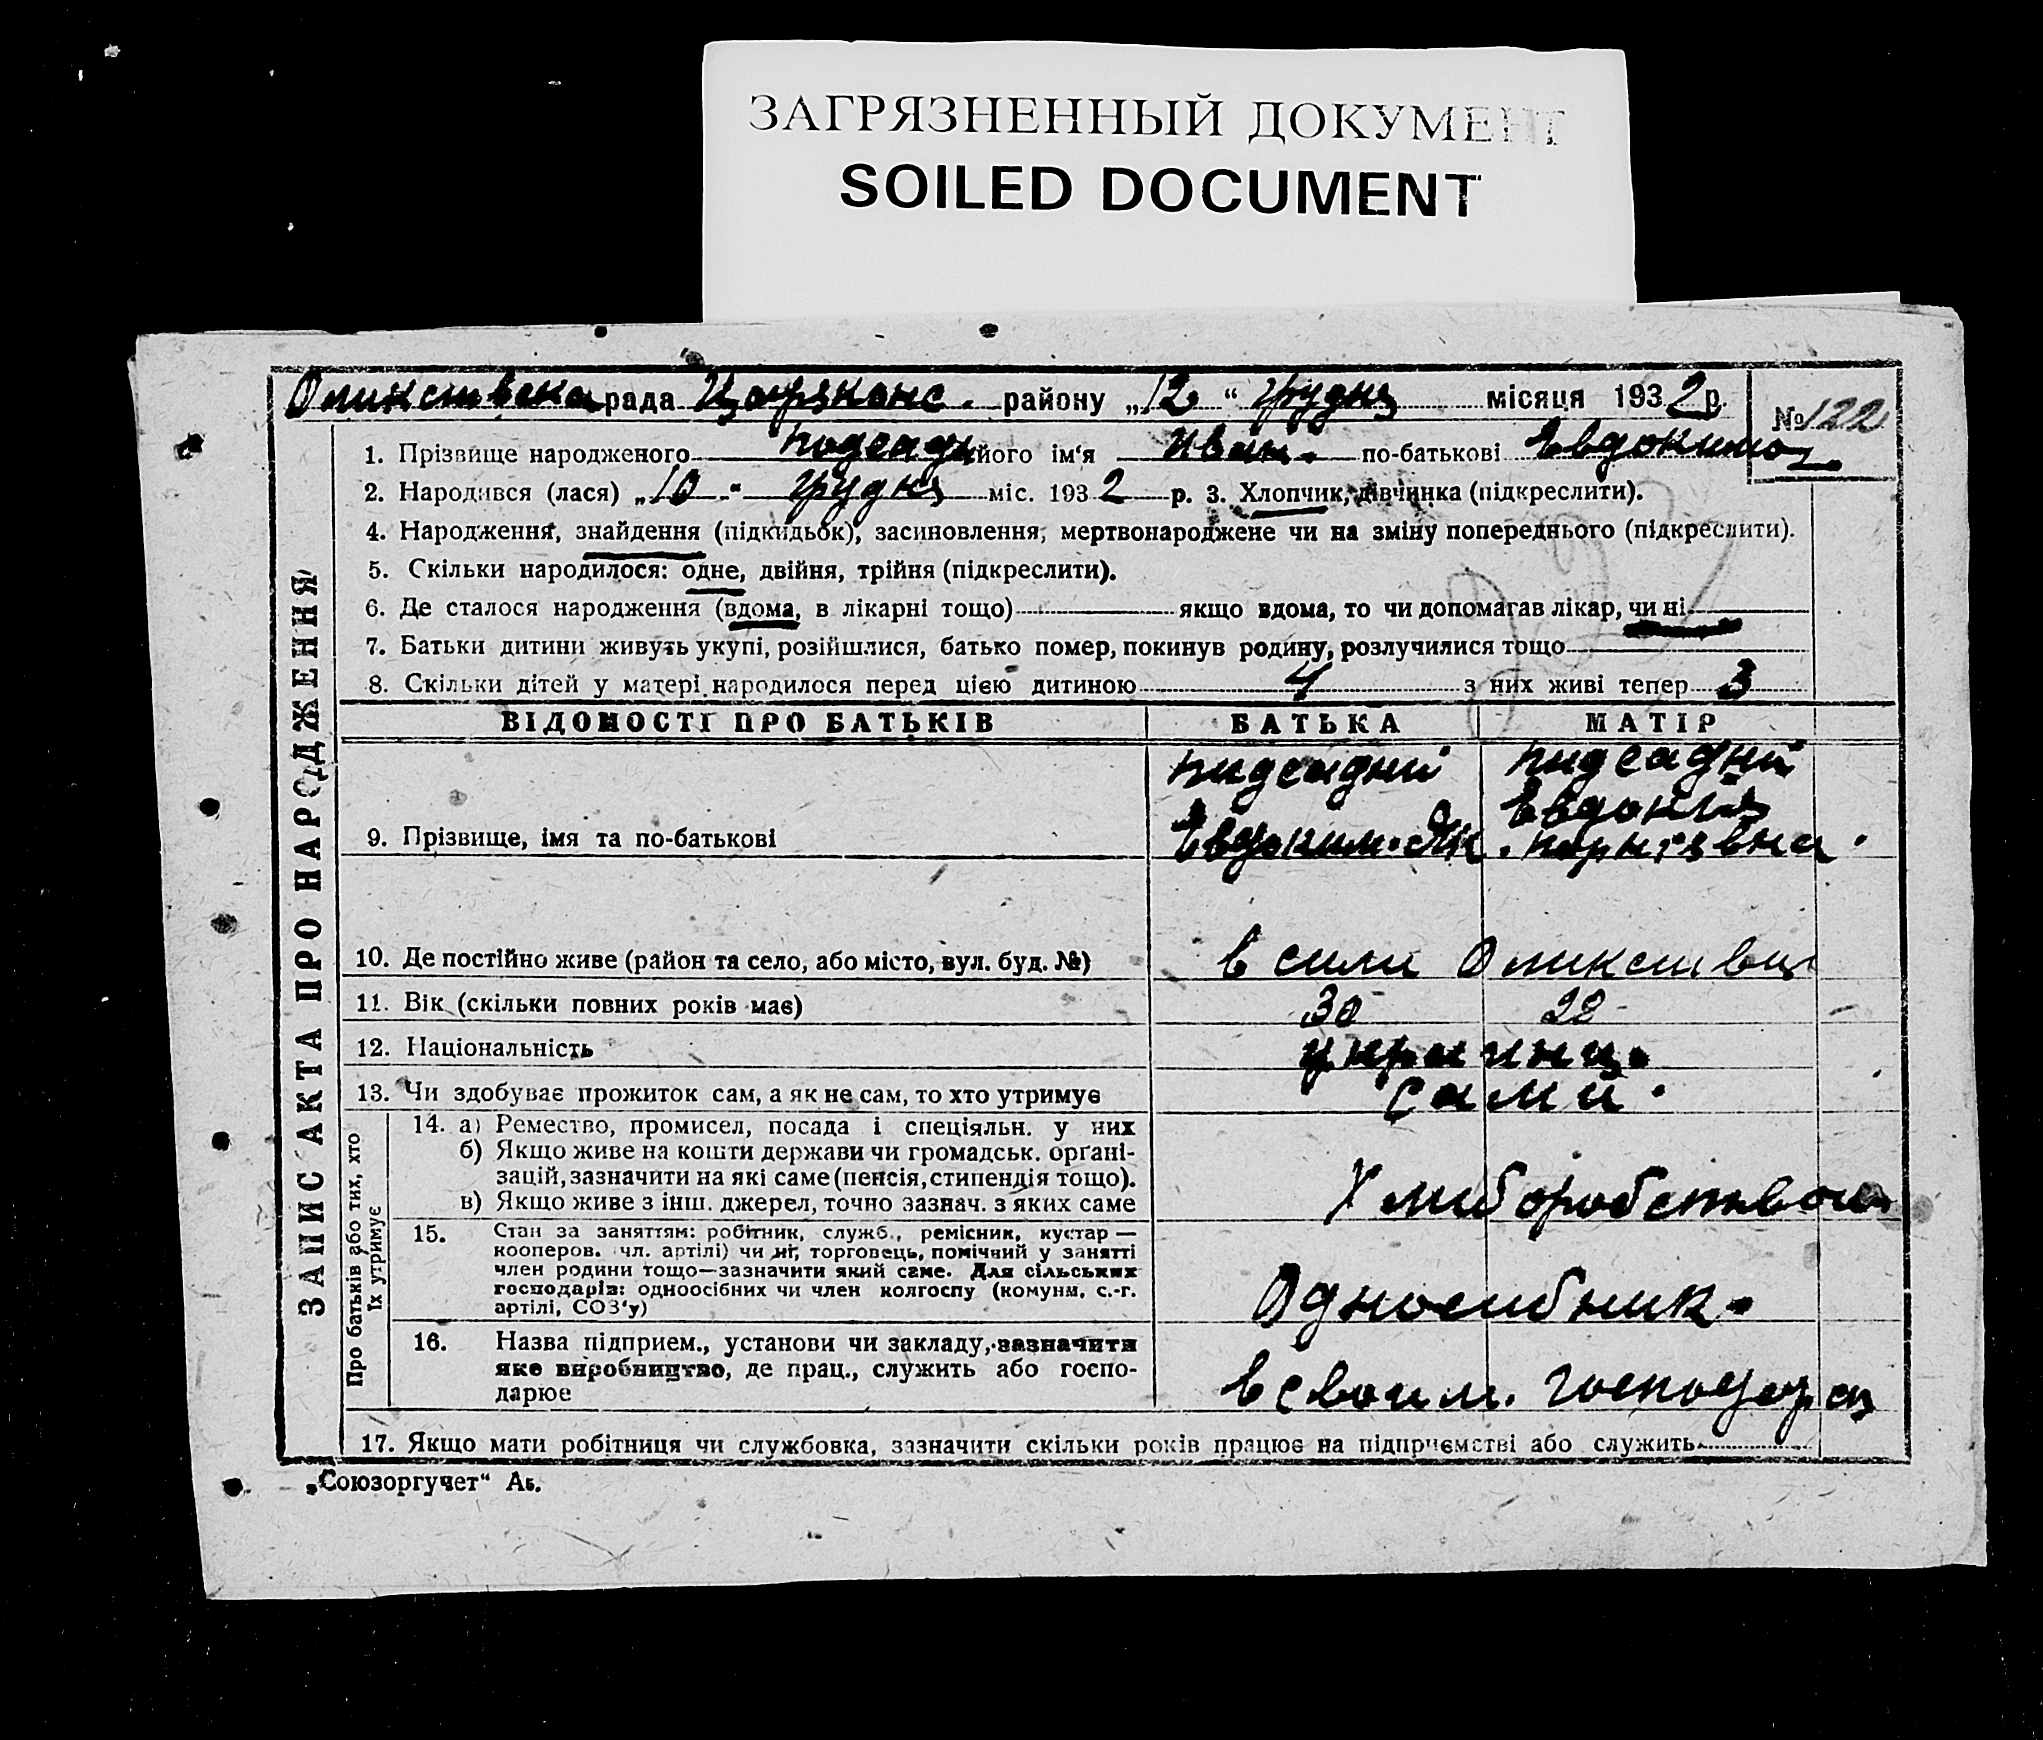 ЗАГРЯЗНЕННЫЙ ДОКУМЕНТ
SOILED DOCUMENT
рада Царяканс. району „12“ грудня місяця 1932 р. № 122
1. Прізвище народженого його ім'я Иван. по-батькові Евдокимо
2. Народився (лася) „10“ грудня міс. 1932 р. 3. Хлопчик, дівчинка (підкреслити).
4. Народження, знайдення (підкидьок), засиновлення, мертвонароджене чи на зміну попереднього (підкреслити).
5. Скільки народилося: одне, двійня, трійня (підкреслити).
6. Де сталося народження (вдома, в лікарні тощо) якщо вдома, то чи допомагав лікар, чи ні
7. Батьки дитини живуть укупі, розійшлися, батько помер, покинув родину, розлучилися тощо
8. Скільки дітей у матері народилося перед цією дитиною 4 з них живі тепер 3
ЗАПИС АКТА ПРО НАРОДЖЕННЯ
ВІДОМОСТІ ПРО БАТЬКІВ БАТЬКА МАТІР
пидсадний пидсадний
Евдокия
9. Прізвище, імя та по-батькові Евдоким.
10. Де постійно живе (район та село, або місто, вул. буд. №) в сили
11. Вік (скільки повних років має) 30 28
12. Національність украинц.
13. Чи здобуває прожиток сам, а як не сам, то хто утримує сами.
Про батьків або тих, хто
їх утримує
14. а) Ремество, промисел, посада і спеціяльн. у них
б) Якщо живе на кошти держави чи громадськ. орґані-
зацій, зазначити на які саме (пенсія, стипендія тощо).
в) Якщо живе з інш. джерел, точно зазнач. з яких саме
Хлиборобством
15. Стан за заняттям: робітник, служб., ремісник, кустар —
кооперов. чл. артілі) чи ні, торговець, помічний у занятті
член родини тощо—зазначити який саме. Для сільських
господарів: одноосібних чи член колгоспу (комуни, с.-г.
артілі, СОЗ'у)
Одноосибник.
16. Назва підприєм., установи чи закладу, зазначити
яке виробництво, де прац., служить або госпо-
дарює
в своим. господарс
17. Якщо мати робітниця чи службовка, зазначити скільки років працює на підприємстві або служить
„Союзоргучет“ Аб.